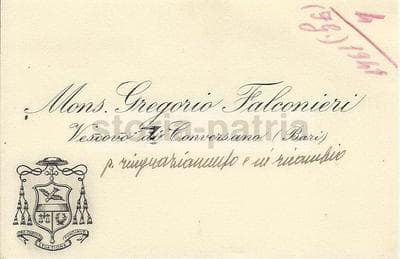 4
(Eg.) 1941
Mons. Gregorio Falconieri
Vescovo di Conversano (Bari)
storia-patria
p. ringraziamento e in ricambio